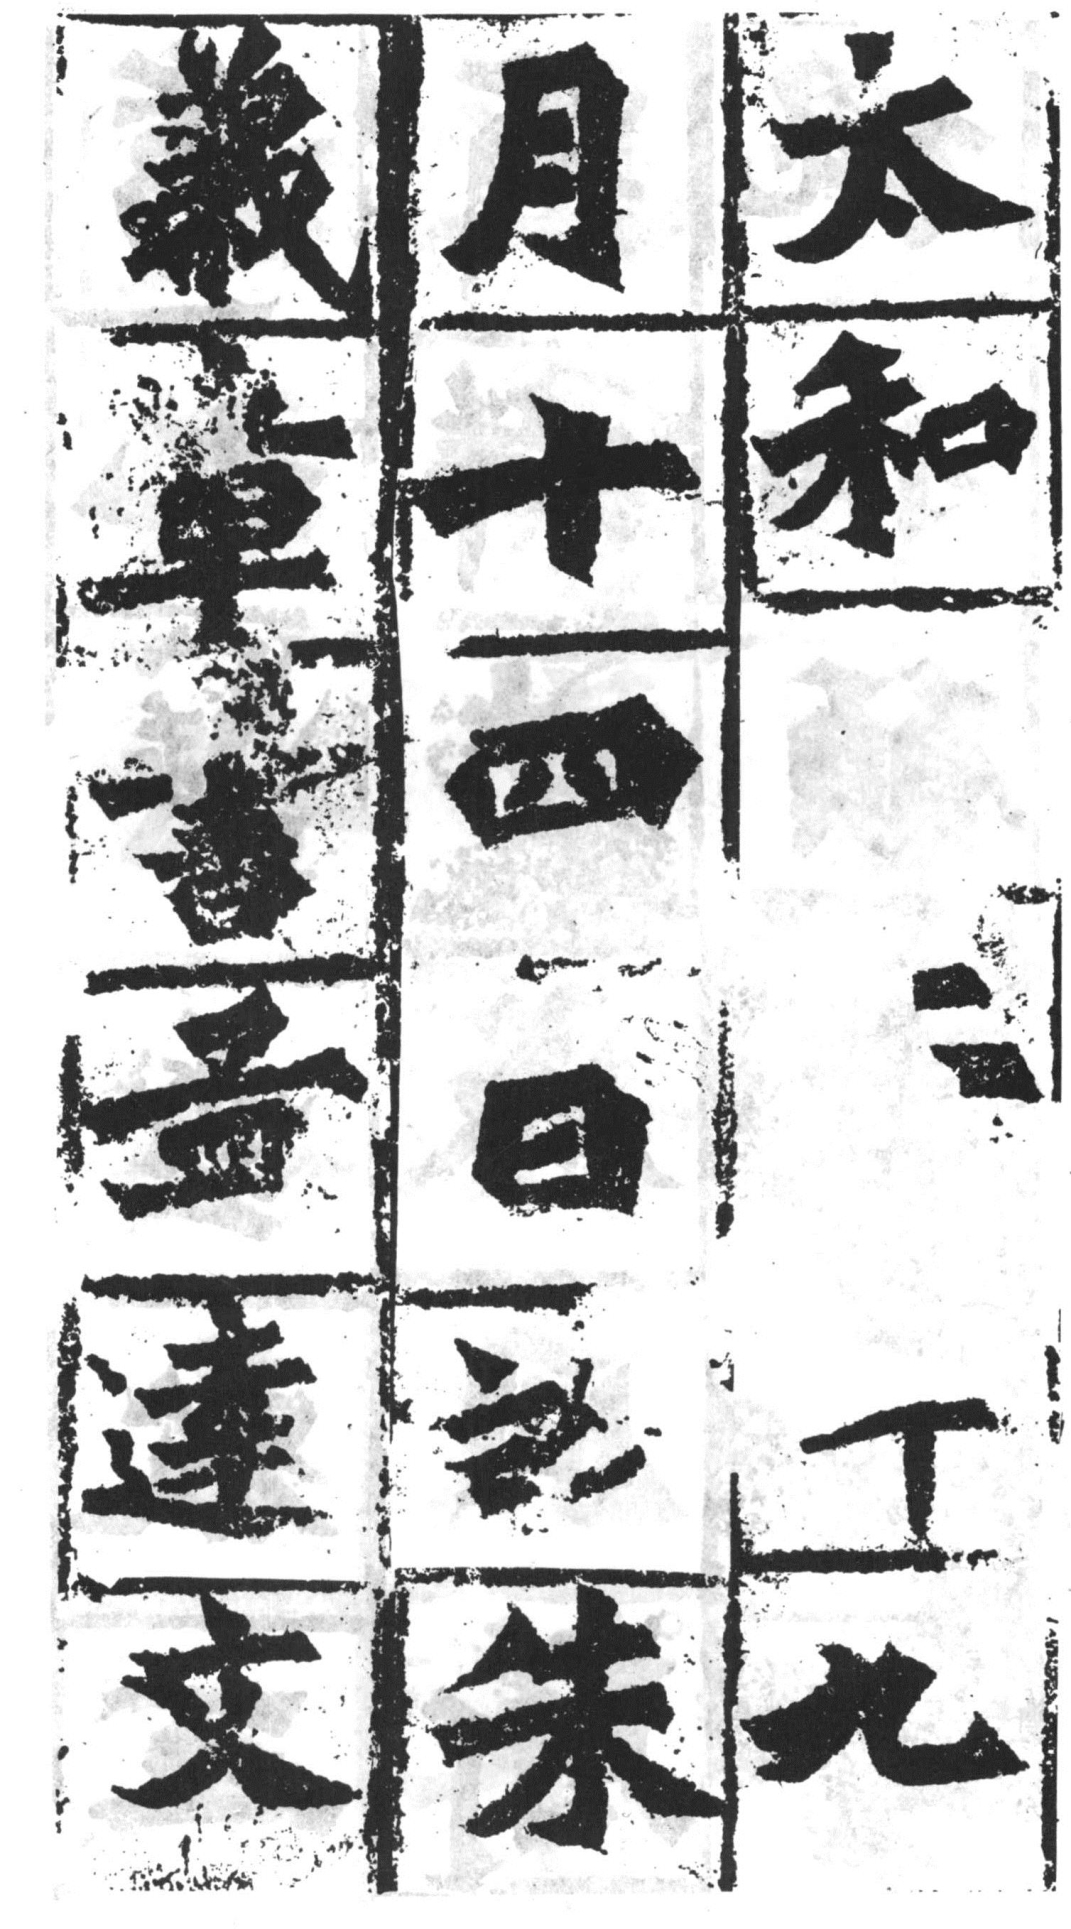 太和二九
月十四日訖朱
義章書孟達文